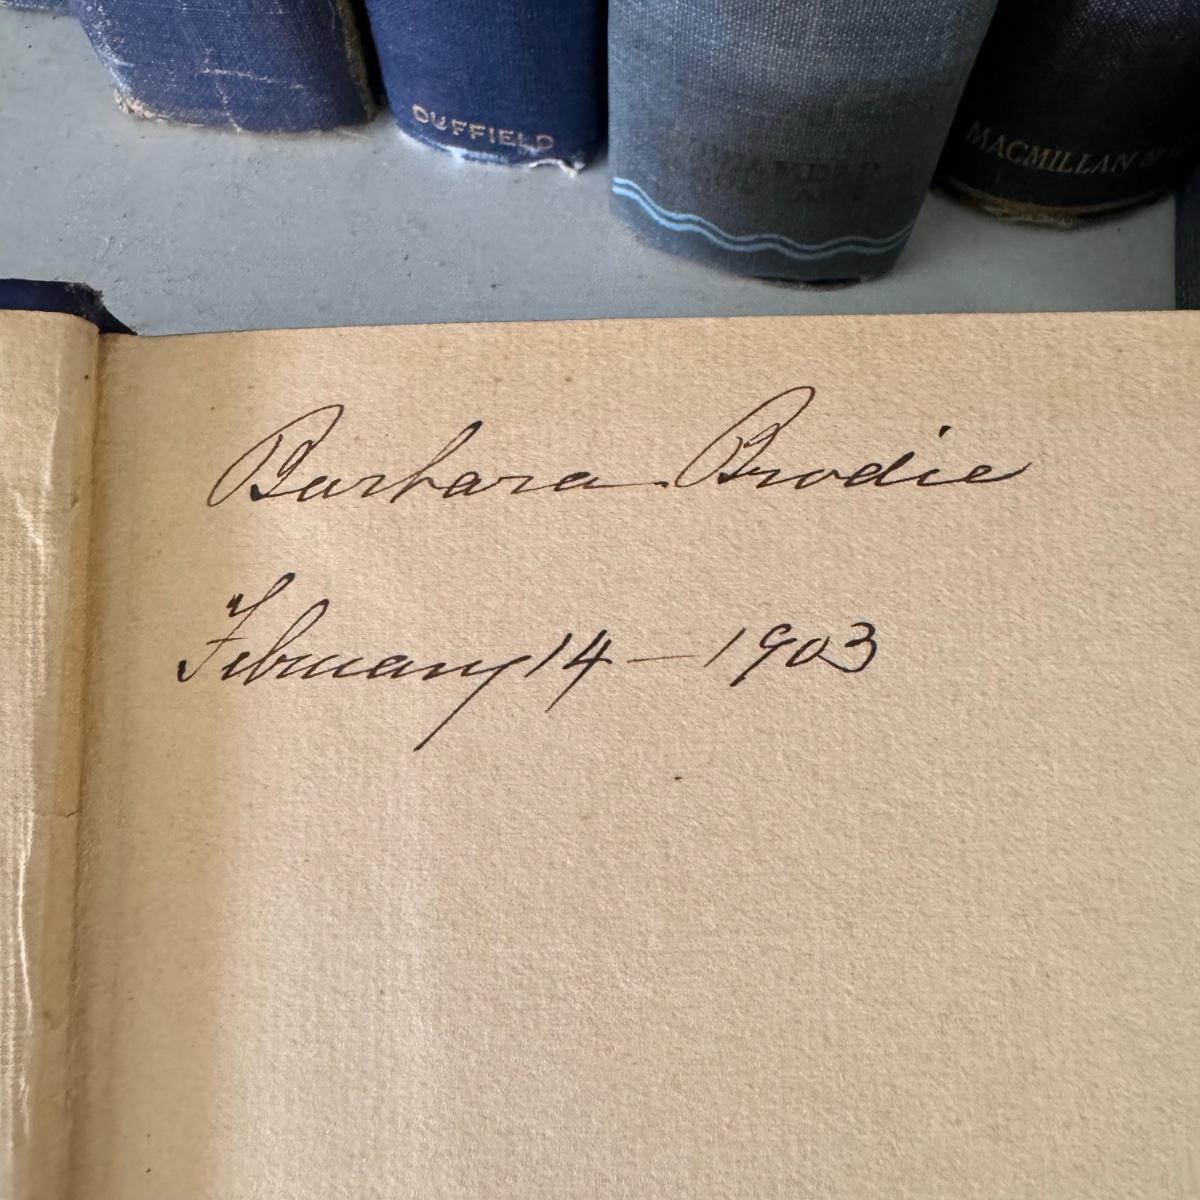 DUFFIELD
MACMILLAN
Barbara Brodie
February 14 — 1903